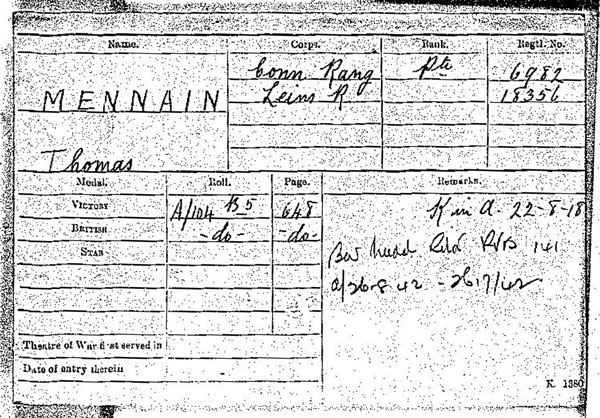 Name. Corps. Rank. Regtl. No.
MENNAIN Conn Rang Pte 6982
Leins R 18356
Thomas
Medal. Roll. Page. Remarks.
VICTORY A/104 B5 648 K in A. 22-8-18
BRITISH -do- -do-
STAR
141
Theatre of War first served in
Date of entry therein
K. 1380